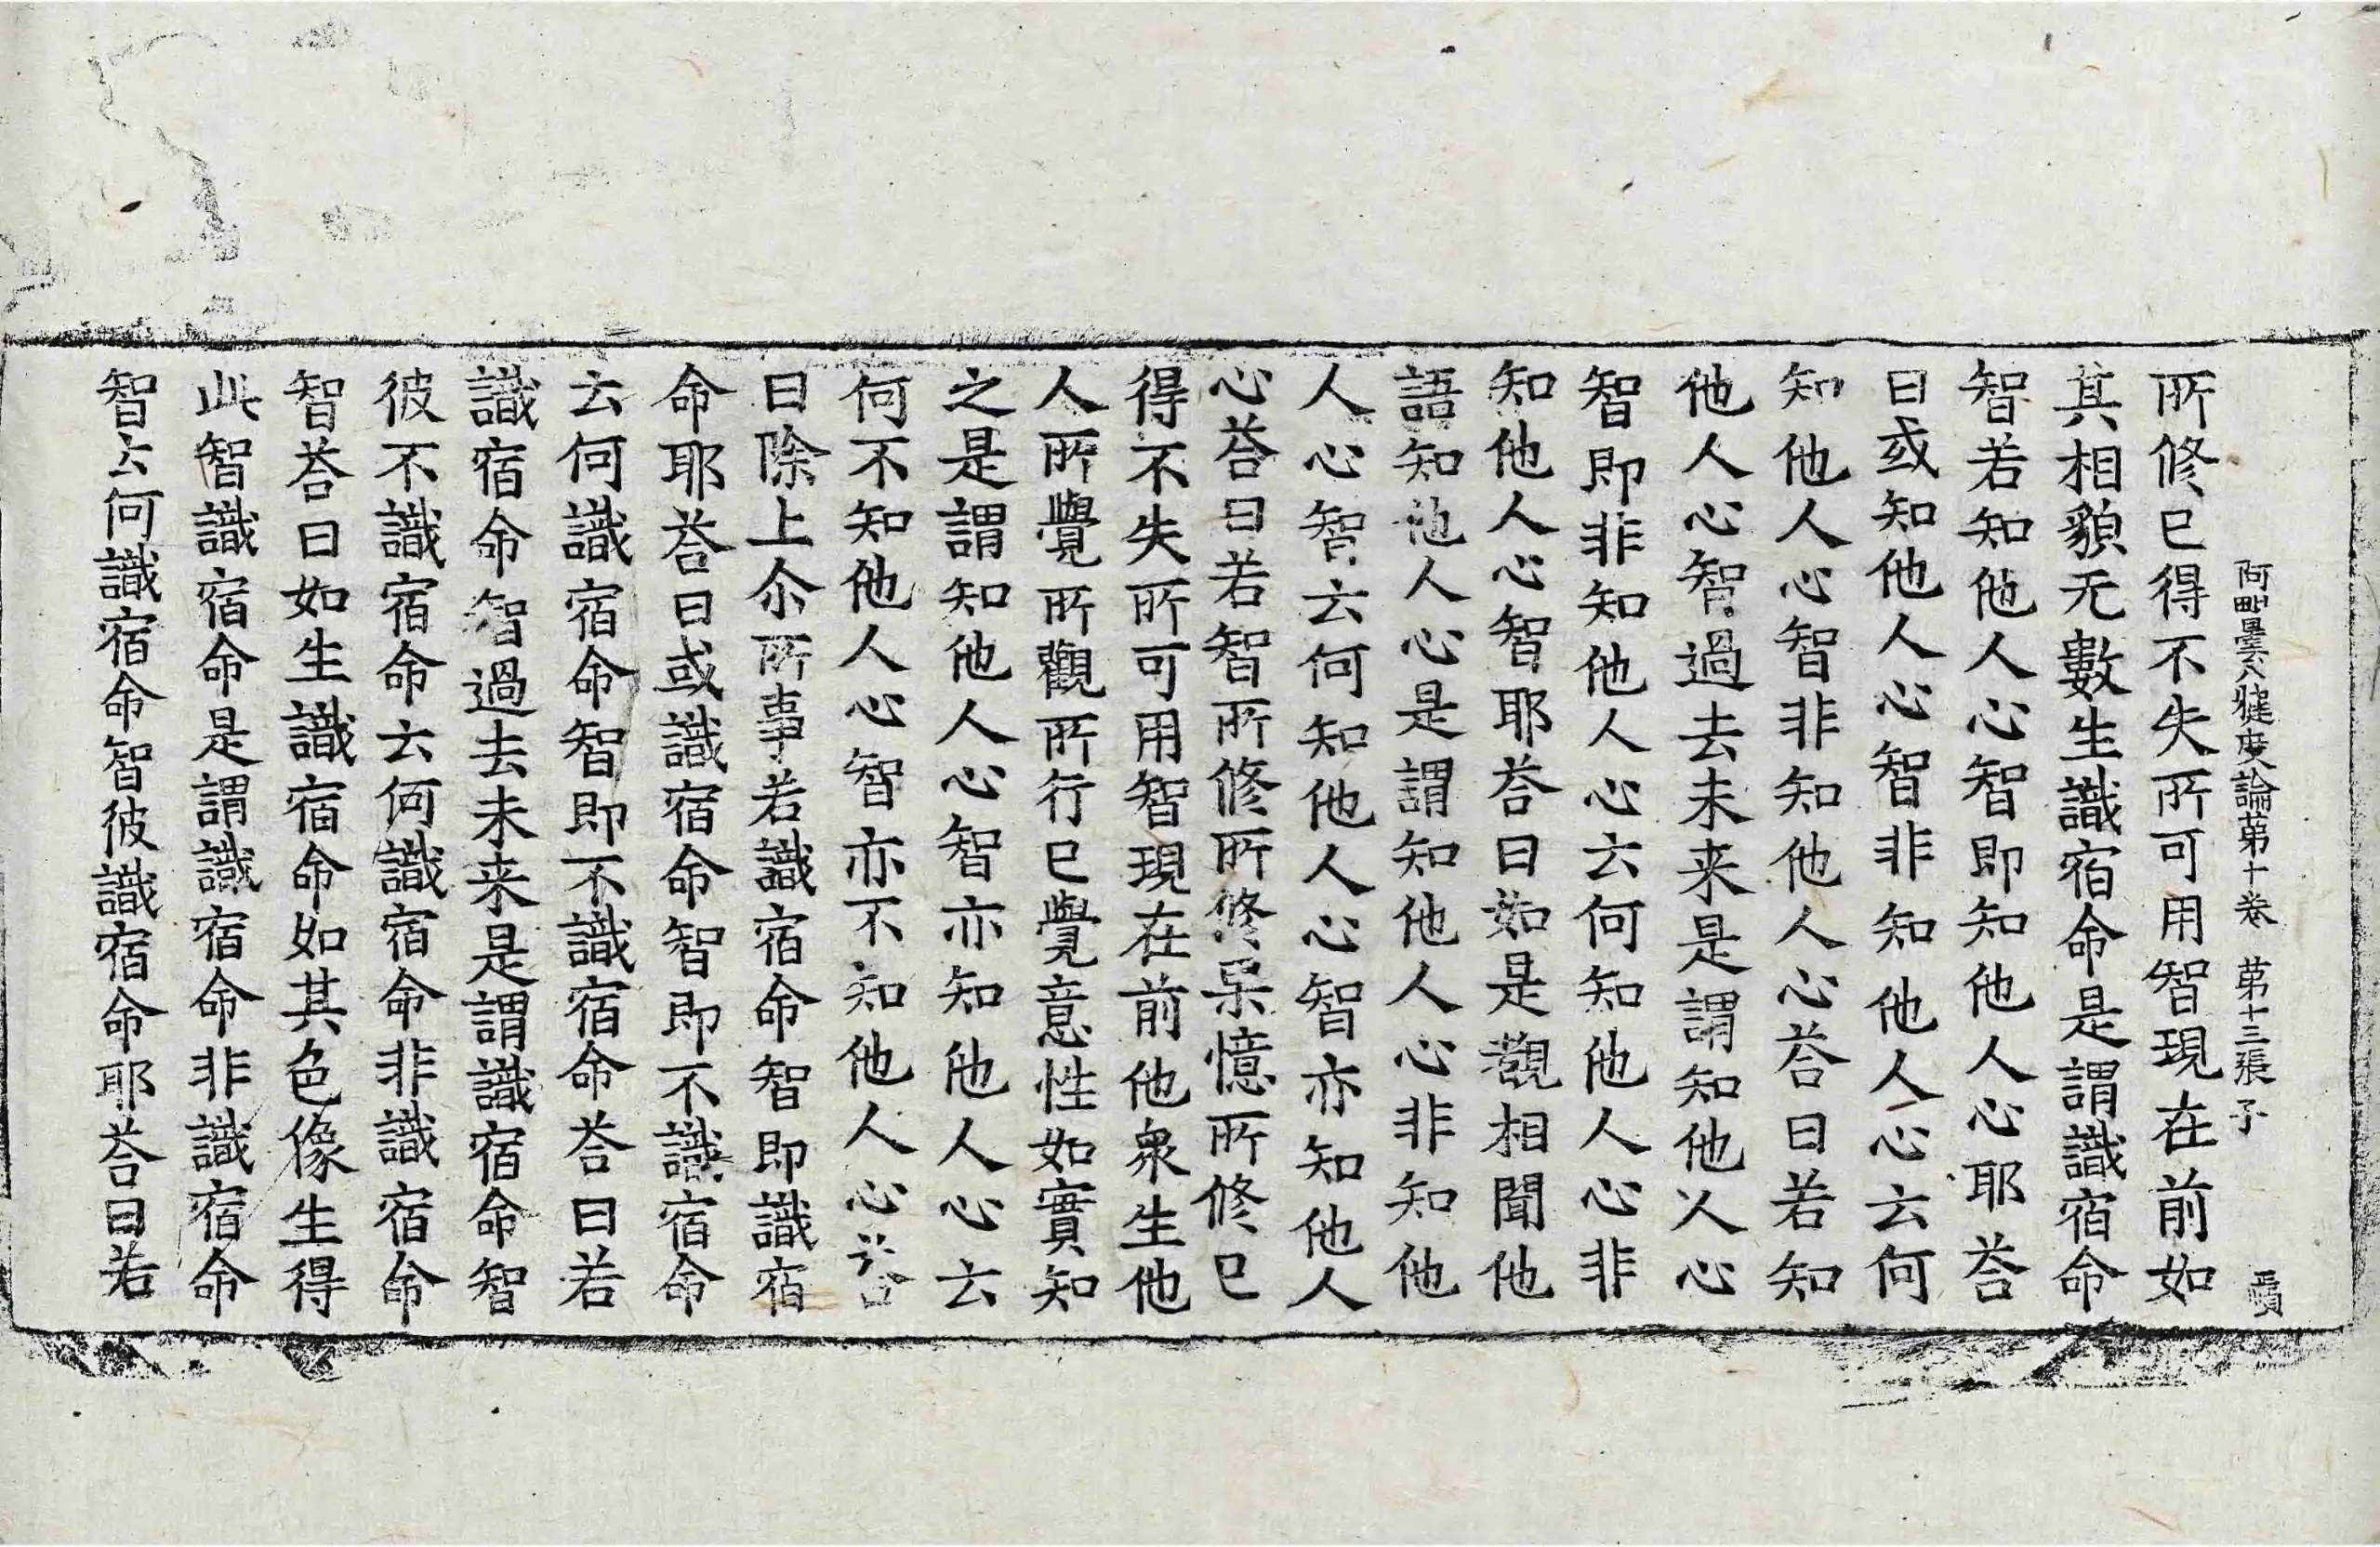 阿毗曇八犍度論苐十卷 苐十三張 子
所修已得不失所可用智現在前如
其相貌无數生識宿命是謂識宿命
智若知他人心智即知他人心耶荅
曰或知他人心智非知他人心云何
知他人心智非知他人心荅曰若知
他人心智過去未来是謂知他人心
智即非知他人心云何知他人心非
知他人心智耶荅曰如是觀相聞他
語知他人心是謂知他人心非知他
人心智云何知他人心智亦知他人
心荅曰若智所修所修果憶所修已
得不失所可用智現在前他衆生他
人所覺所觀所行已覺意性如實知
之是謂知他人心智亦知他人心云
何不知他人心智亦不知他人心荅
曰除上尒所事若識宿命智即識宿
命耶荅曰或識宿命智即不識宿命
云何識宿命智即不識宿命荅曰若
識宿命智過去未来是謂識宿命智
彼不識宿命云何識宿命非識宿命
智荅曰如生識宿命如其色像生得
此智識宿命是謂識宿命非識宿命
智云何識宿命智彼識宿命耶荅曰若